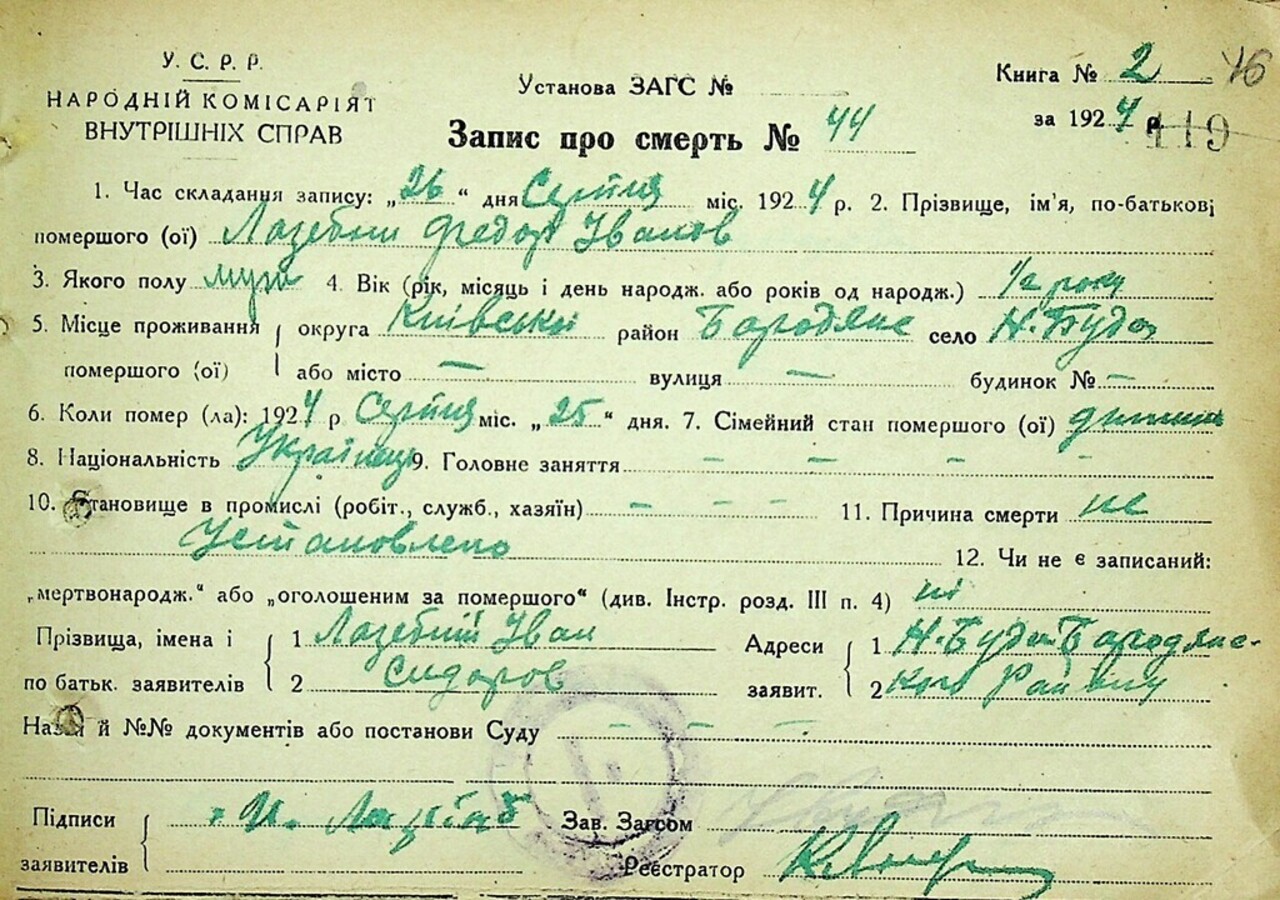 У. С. Р. Р.
НАРОДНІЙ КОМІСАРІЯТ
ВНУТРІШНІХ СПРАВ
Установа ЗАГС №
Книга № 2 46
за 1924 р. 119
Запис про смерть № 44
1. Час складання запису: „26“ дня Серпня міс. 1924 р. 2. Прізвище, ім'я, по-батькові
помершого (ої) Лазебний Федор Іванов
3. Якого полу муж 4. Вік (рік, місяць і день народж. або років од народж.) 1/2 року
5. Місце проживання помершого (ої)
округа Київської район Бородянс село Н. Буда
або місто — вулиця — будинок № —
6. Коли помер (ла): 1924 р Серпня міс. „25“ дня. 7. Сімейний стан помершого (ої) дитина
8. Національність Українець 9. Головне заняття — — — —
10. Становище в промислі (робіт., служб., хазяїн) — — — 11. Причина смерти не
Установлено
12. Чи не є записаний:
„мертвонародж.“ або „оголошеним за помершого“ (див. Інстр. розд. III п. 4) ні
Прізвища, імена і по батьк. заявителів
1 Лазебний Іван
2 Сидоров
Адреси заявит.
1 Н. Буда Бородянс-
2 кого Району
Назви й №№ документів або постанови Суду — — —
Підписи заявителів
И.
Зав. Загсом
Реєстратор